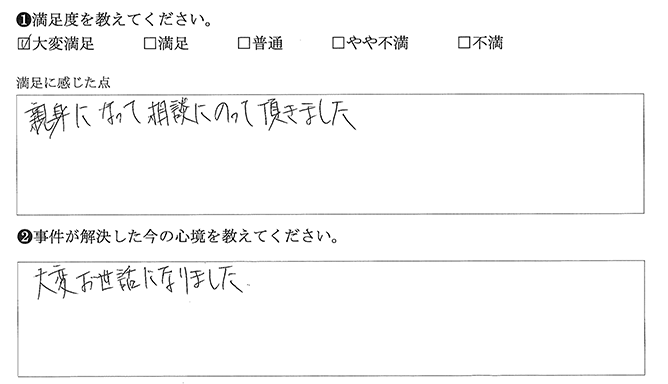 ❶満足度を教えてください。
☑大変満足 □満足 □普通 □やや不満 □不満
満足に感じた点
親身になって相談にのって頂きました
❷事件が解決した今の心境を教えてください。
大変お世話になりました.